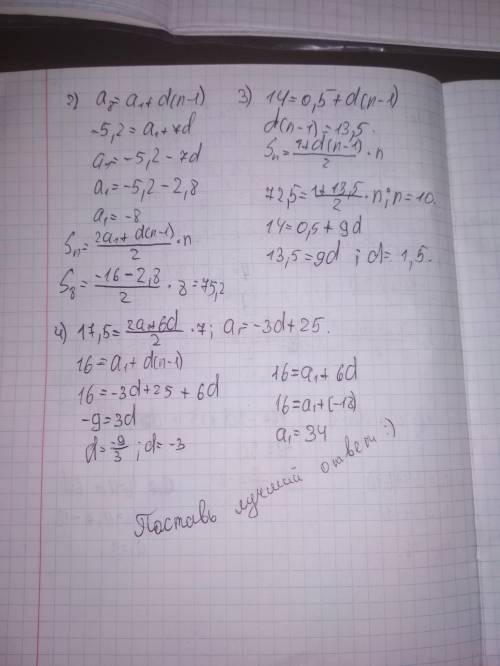 2) a₈ = a₁ + d(n-1)
-5,2 = a₁ + 7d
a₁ = -5,2 - 7d
a₁ = -5,2 - 2,8
a₁ = -8
Sₙ = (2a₁ + d(n-1))/2 · n
S₈ = (-16 - 2,8)/2 · 8 = 75,2
3) 14 = 0,5 + d(n-1)
d(n-1) = 13,5.
Sₙ = (1 + d(n-1))/2 · n
72,5 = (1 + 13,5)/2 · n; n = 10.
14 = 0,5 + 9d
13,5 = 9d ; d = 1,5.
4) 17,5 = (2a₁ + 6d)/2 · 7; a₁ = -3d + 25.
16 = a₁ + d(n-1)
16 = -3d + 25 + 6d
-9 = 3d
d = -9/3 ; d = -3
16 = a₁ + 6d
16 = a₁ + (-18)
a₁ = 34
Поставь лучший ответ :)